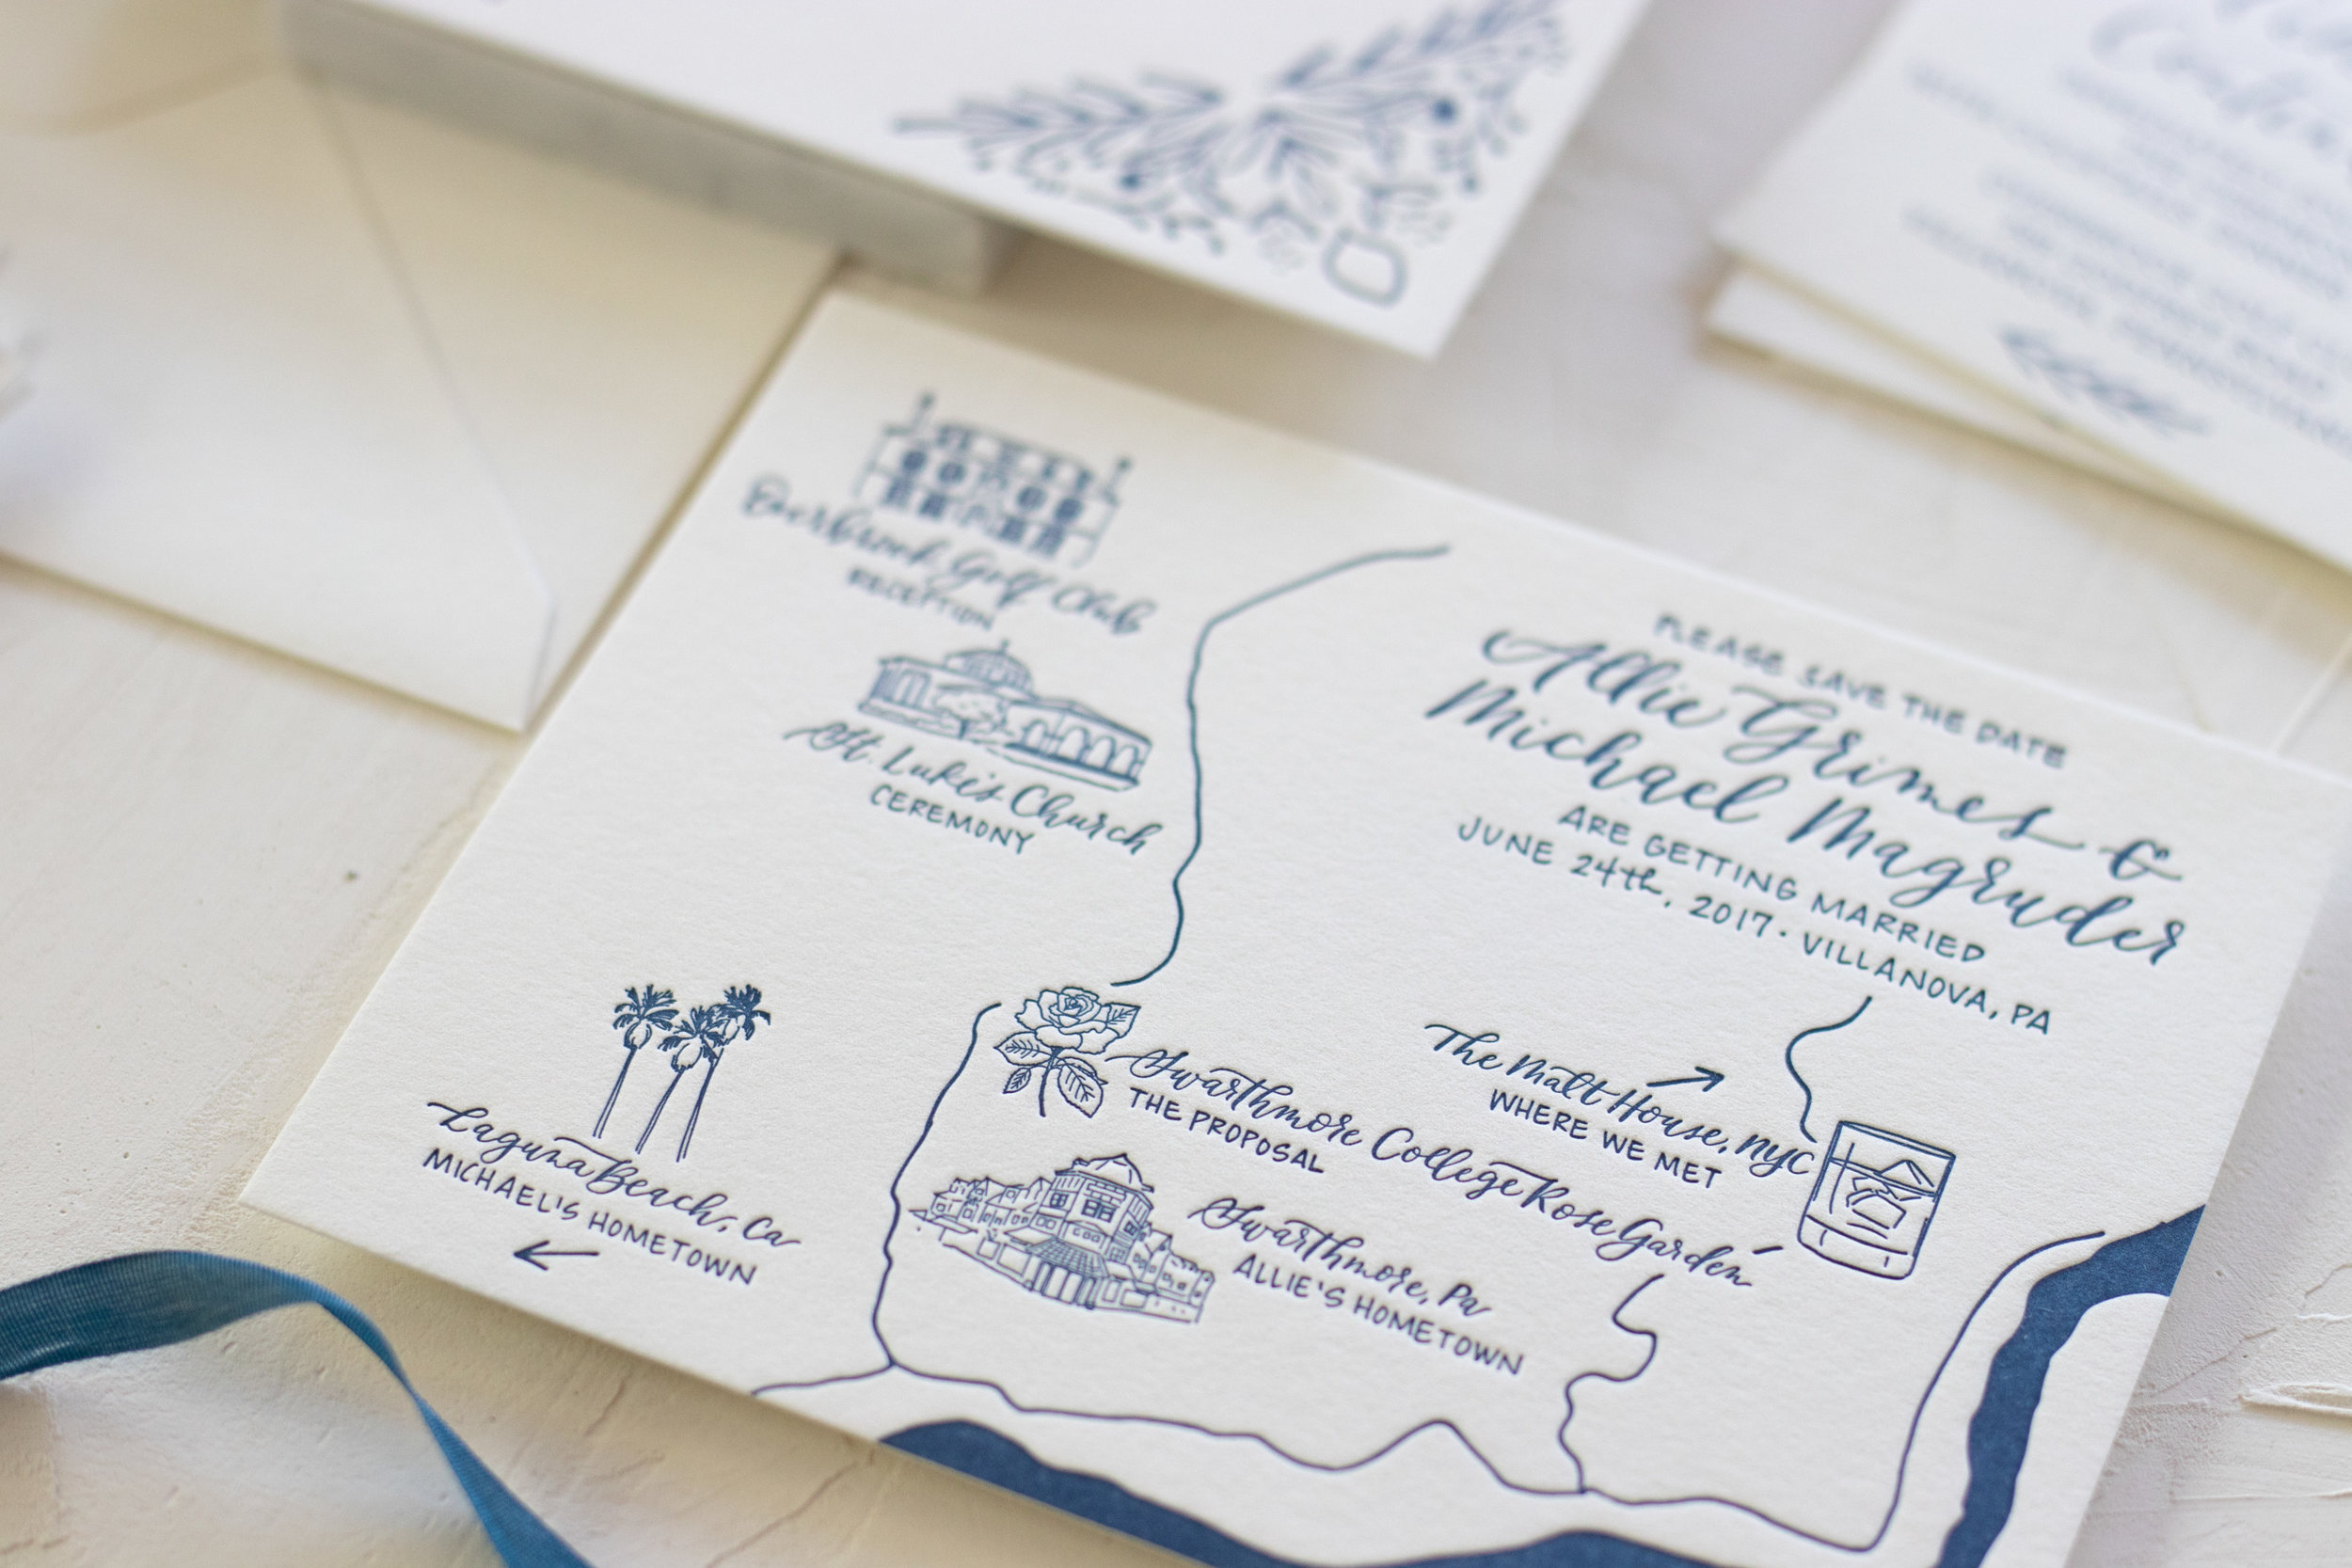 Overbrook Golf Club
RECEPTION
St. Luke's Church
CEREMONY
PLEASE SAVE THE DATE
Allie Grimes &
Michael Magruder
ARE GETTING MARRIED
JUNE 24th, 2017 · VILLANOVA, PA
Laguna Beach, Ca
MICHAEL'S HOMETOWN
The Malt House, NYC
WHERE WE MET
Swarthmore College Rose Garden
THE PROPOSAL
Swarthmore, Pa
ALLIE'S HOMETOWN